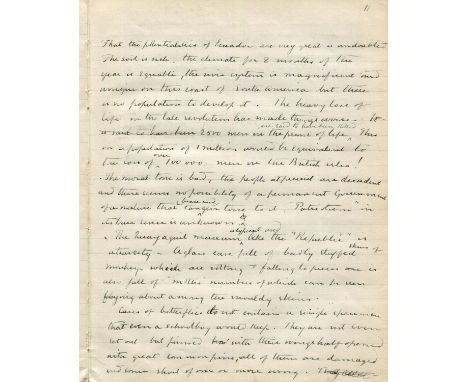 11
That the potentialities of Ecuador are very great is undoubted
The soil is rich, the climate for 8 months of the
year is equable, the river system is magnificent and
unique on this coast of South America but there
is no population to develop it. The heavy loss of
life in the late revolution has made things worse.
are said to have been killed
2500 men in the prime of life, This
on a population of 1 million would be equivalent to
the loss of over 100 000 men in the British isles!
The moral tone is bad, the people at present are decadent
and there seems no possibility of a permanent Government
of a nature that can give tone to it. Patriotism in
its true sense is unknown.
The Guayaquil museum, like the "Republic" is
atrocity. A glass case full of badly stuffed
monkeys which are rotting & falling to pieces one is
also full of millers numbers of which can be seen
flying about among the mouldy skins.
Cases of butterflies do not contain a single specimen
that even a schoolboy would keep. They are not even
set out but pinned with their wings half opened
with great common pins, all of them are damaged
and some short of one or more wing.